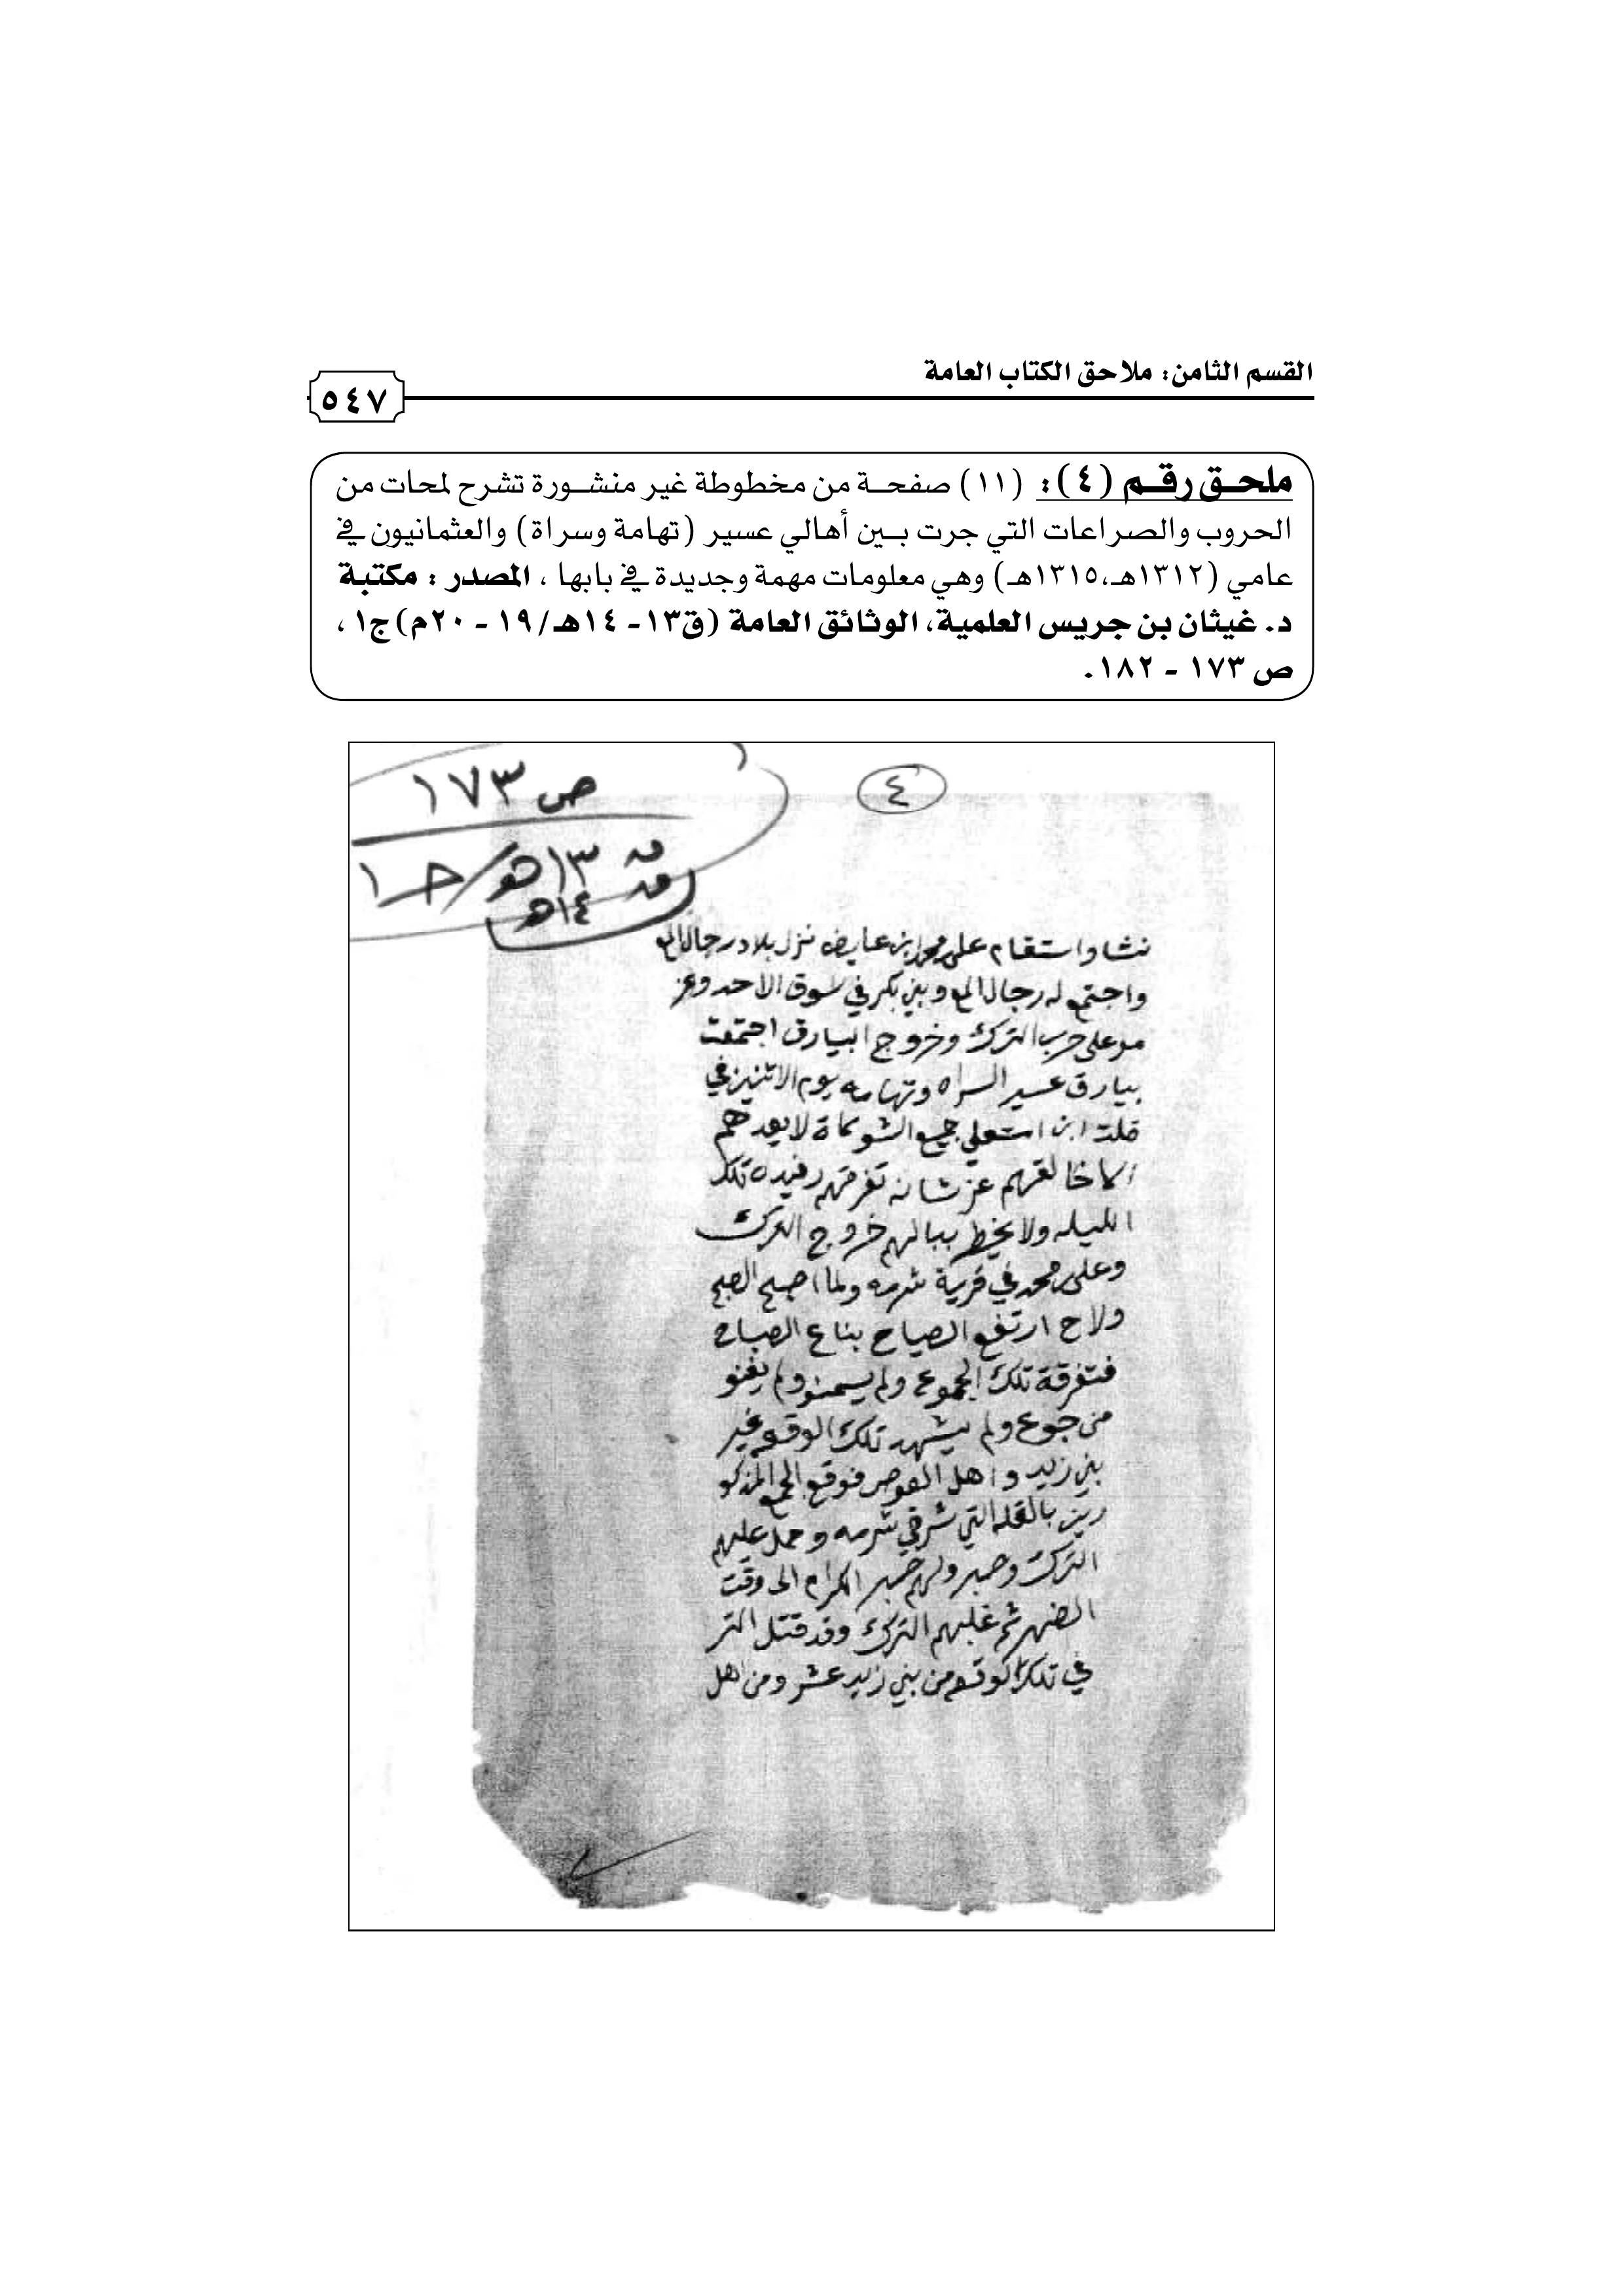 القسم الثامن: ملاحق الكتاب العامة
٥٤٧
ملحق رقم (٤): (١١) صفحة من مخطوطة غير منشورة تشرح لمحات من
الحروب والصراعات التي جرت بين أهالي عسير (تهامة وسراة) والعثمانيون في
عامي (١٣١٢هـ،١٣١٥هـ) وهي معلومات مهمة وجديدة في بابها ، المصدر : مكتبة
د. غيثان بن جريس العلمية، الوثائق العامة (ق١٣- ١٤هـ/ ١٩ - ٢٠م) ج١ ،
ص ١٧٣ - ١٨٢.
ص ١٧٣
٤
ق ١٣هـ/ جـ ١
ق ١٤هـ
نشا واستقام على محمد ابن عايض نزل بلاد رجال المع
واجتمع له رجال المع وبني بكر في سوق الاحد وعز
مو على حرب الترك وخروج البيارق اجتمعت
بيارق عسير السراه وتهامه يوم الاثنين في
جميع الشوكاة لا يعدهم
الا خالقهم عز شانه تفرقهم رفيده تلك
الليله ولا يخطر ببالهم خروج الترك
وعلى محمد في قرية شرمه ولما اصبح الصبح
ولاح ارتفع الصياح بناع الصباح
فتفرقة تلك الجموع ولم يسمنو ولم يغنو
من جوع ولم يشهد تلك الوقعه غير
بني زيد و اهل العوص فوقع الجمع المذكو
رين بالقله التي شرقي شرمه وحمل عليهم
الترك وصبر ولهم صبر الكرام الى وقت
الضهر ثم غلبهم الترك وقد قتل التر
في تلك الوقعه من بني زيد عشر ومن اهل